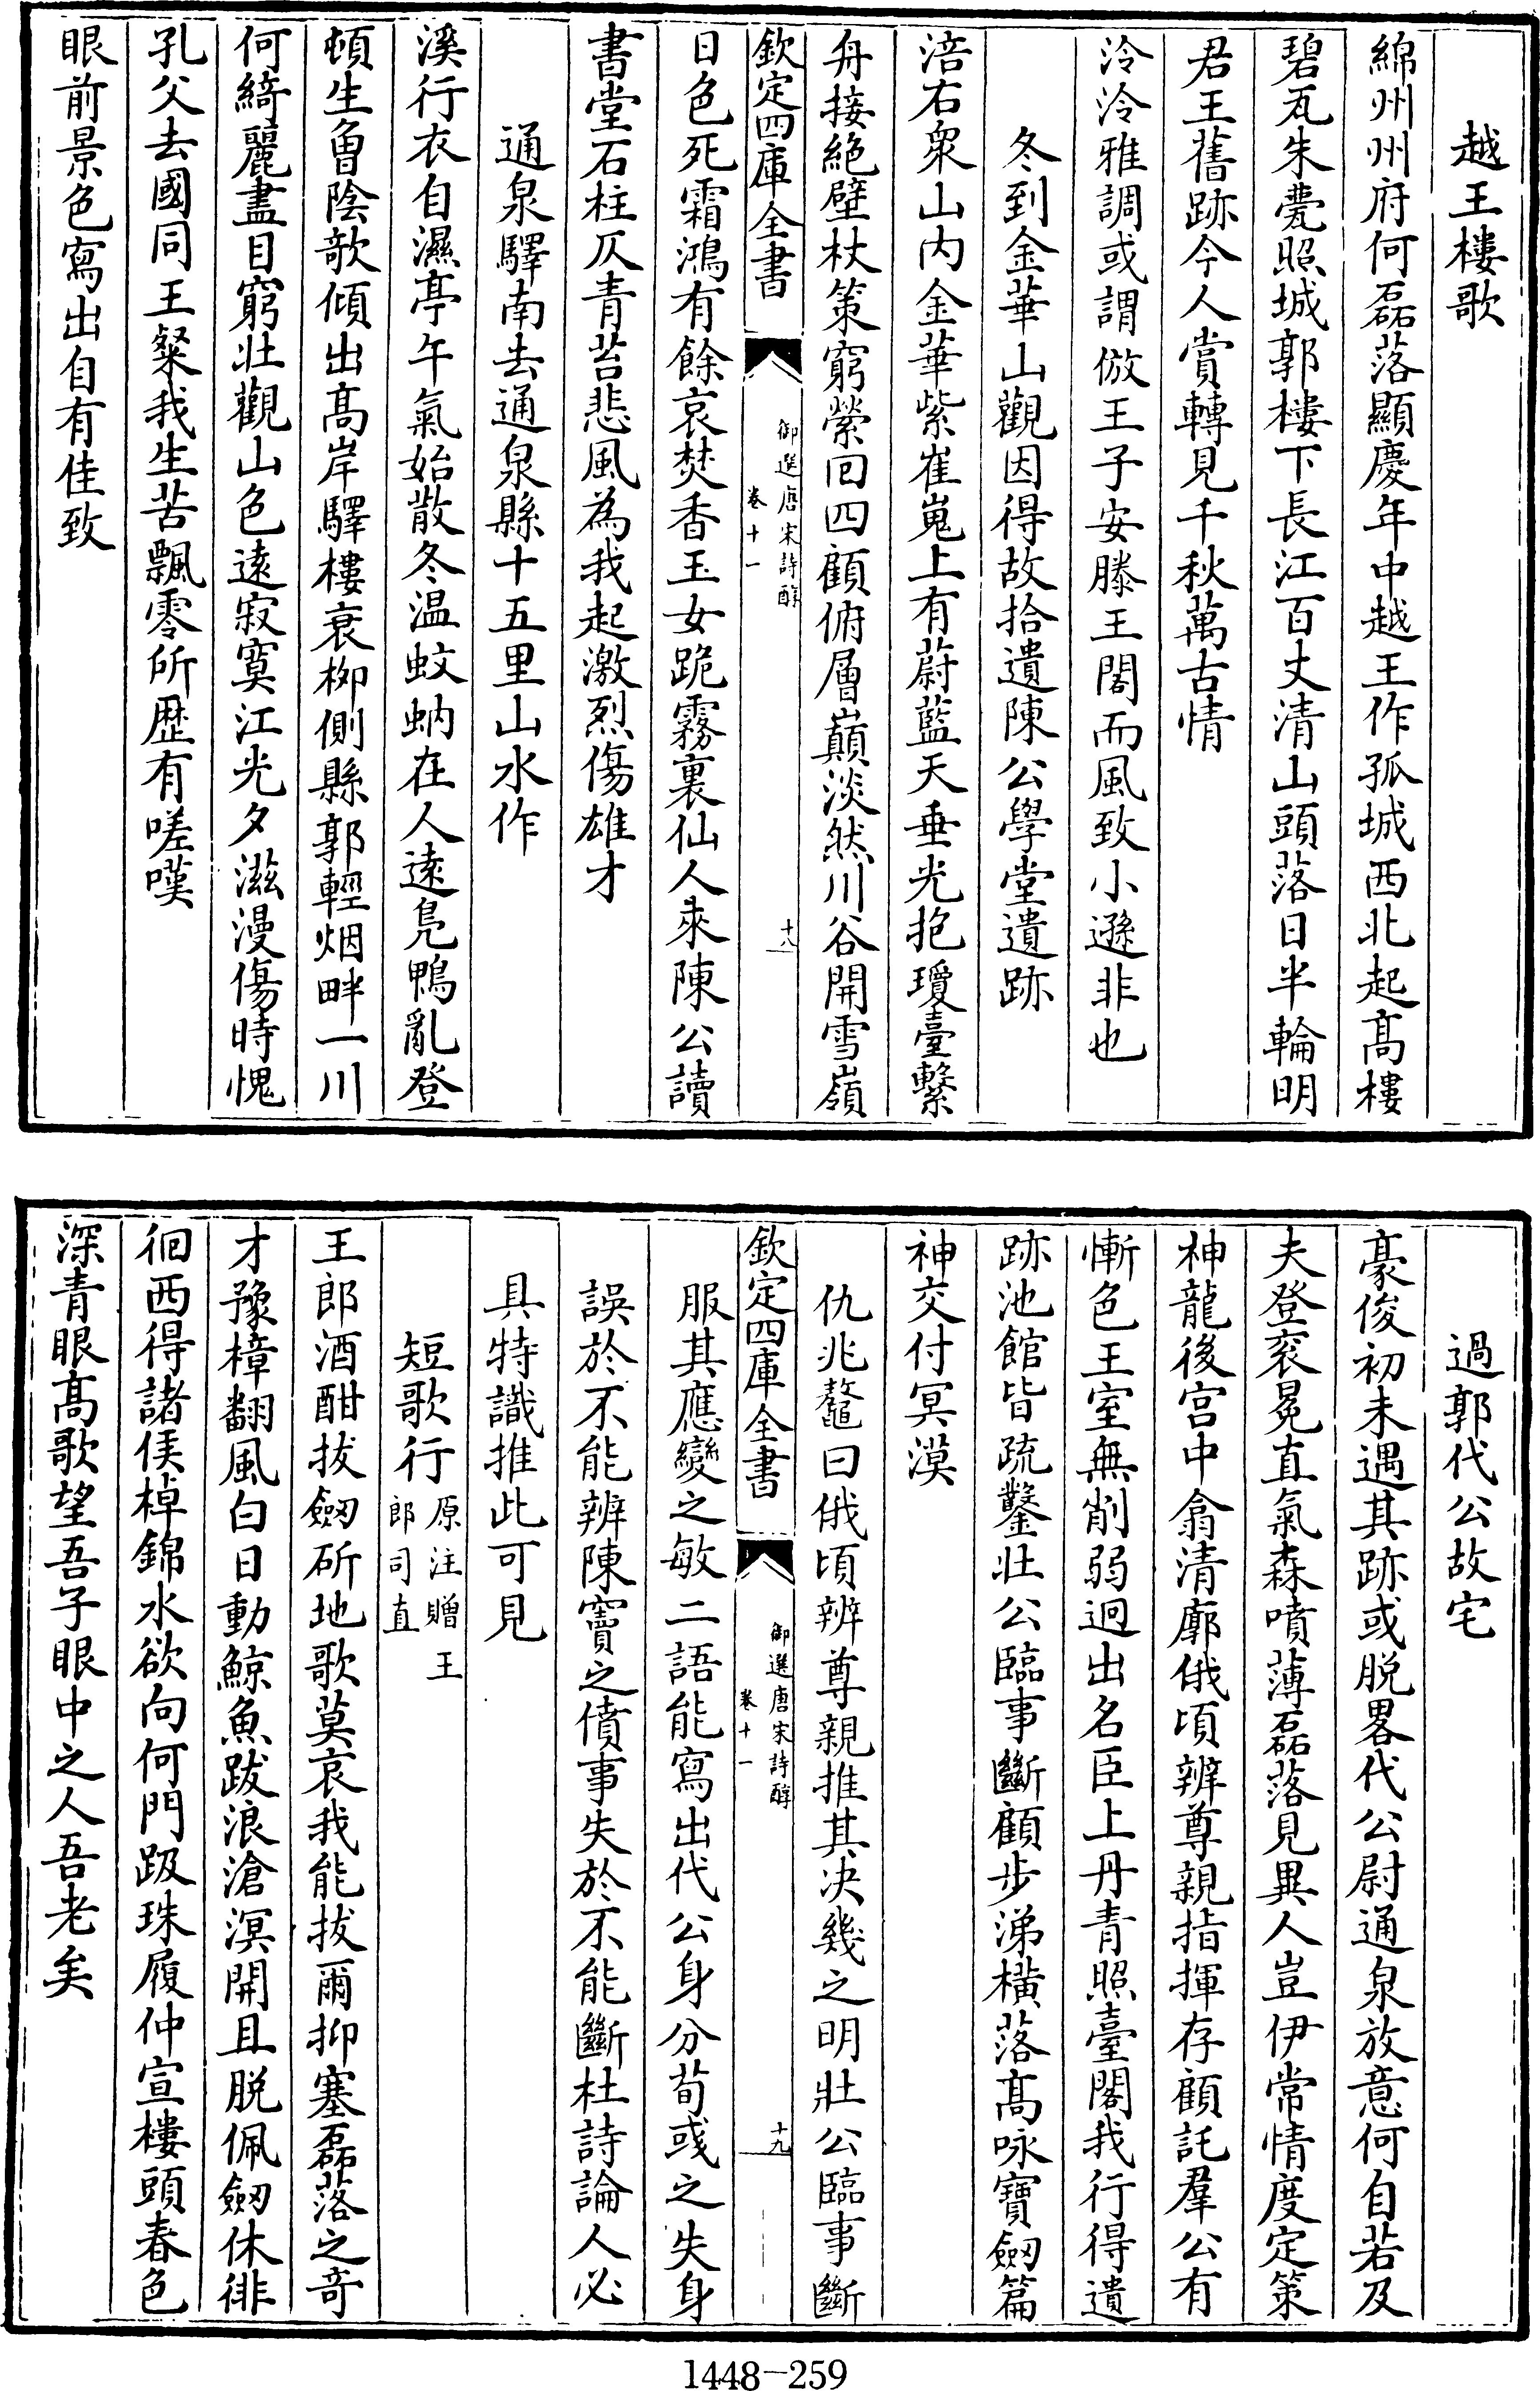 越王樓歌
綿州州府何磊落顯慶年中越王作孤城西北起髙樓
碧瓦朱甍照城郭樓下長江百丈清山頭落日半輪明
君王舊跡今人賞轉見千秋萬古情
泠泠雅調或謂倣王子安滕王閣而風致小遜非也
冬到金華山觀因得故拾遺陳公學堂遺跡
涪右衆山内金華紫崔嵬上有蔚藍天垂光抱瓊臺繫
舟接絶壁杖策窮縈囘四顧俯層巔淡然川谷開雪嶺
欽定四庫全書
御選唐宋詩醇
卷十一
十八
日色死霜鴻有餘哀焚香玉女跪霧裏仙人來陳公讀
書堂石柱仄青苔悲風為我起激烈傷雄才
通泉驛南去通泉縣十五里山水作
溪行衣自濕亭午氣始散冬温蚊蚋在人遠鳬鴨亂登
頓生曾陰欹傾出髙岸驛樓衰柳側縣郭輕烟畔一川
何綺麗盡目窮壯觀山色遠寂寞江光夕滋漫傷時愧
孔父去國同王粲我生苦飄零所歴有嗟嘆
眼前景色寫出自有佳致
過郭代公故宅
豪俊初未遇其跡或脱畧代公尉通泉放意何自若及
夫登衮冕直氣森噴薄磊落見異人豈伊常情度定策
神龍後宫中翕清廓俄頃辨尊親指揮存顧託羣公有
慚色王室無削弱迥出名臣上丹青照臺閣我行得遺
跡池館皆疏鑿壯公臨事斷顧步涕横落髙咏寶劒篇
神交付冥漠
仇兆鼇曰俄頃辨尊親推其決幾之明壯公臨事斷
欽定四庫全書
御選唐宋詩醇
卷十一
十九
服其應變之敏二語能寫出代公身分荀彧之失身
誤於不能辨陳竇之僨事失於不能斷杜詩論人必
具特識推此可見
短歌行原注贈王郎司直
王郎酒酣拔劒斫地歌莫哀我能拔爾抑塞磊落之竒
才豫樟翻風白日動鯨魚跋浪滄溟開且脱佩劒休徘
徊西得諸侯棹錦水欲向何門趿珠履仲宣樓頭春色
深青眼髙歌望吾子眼中之人吾老矣
1448-259